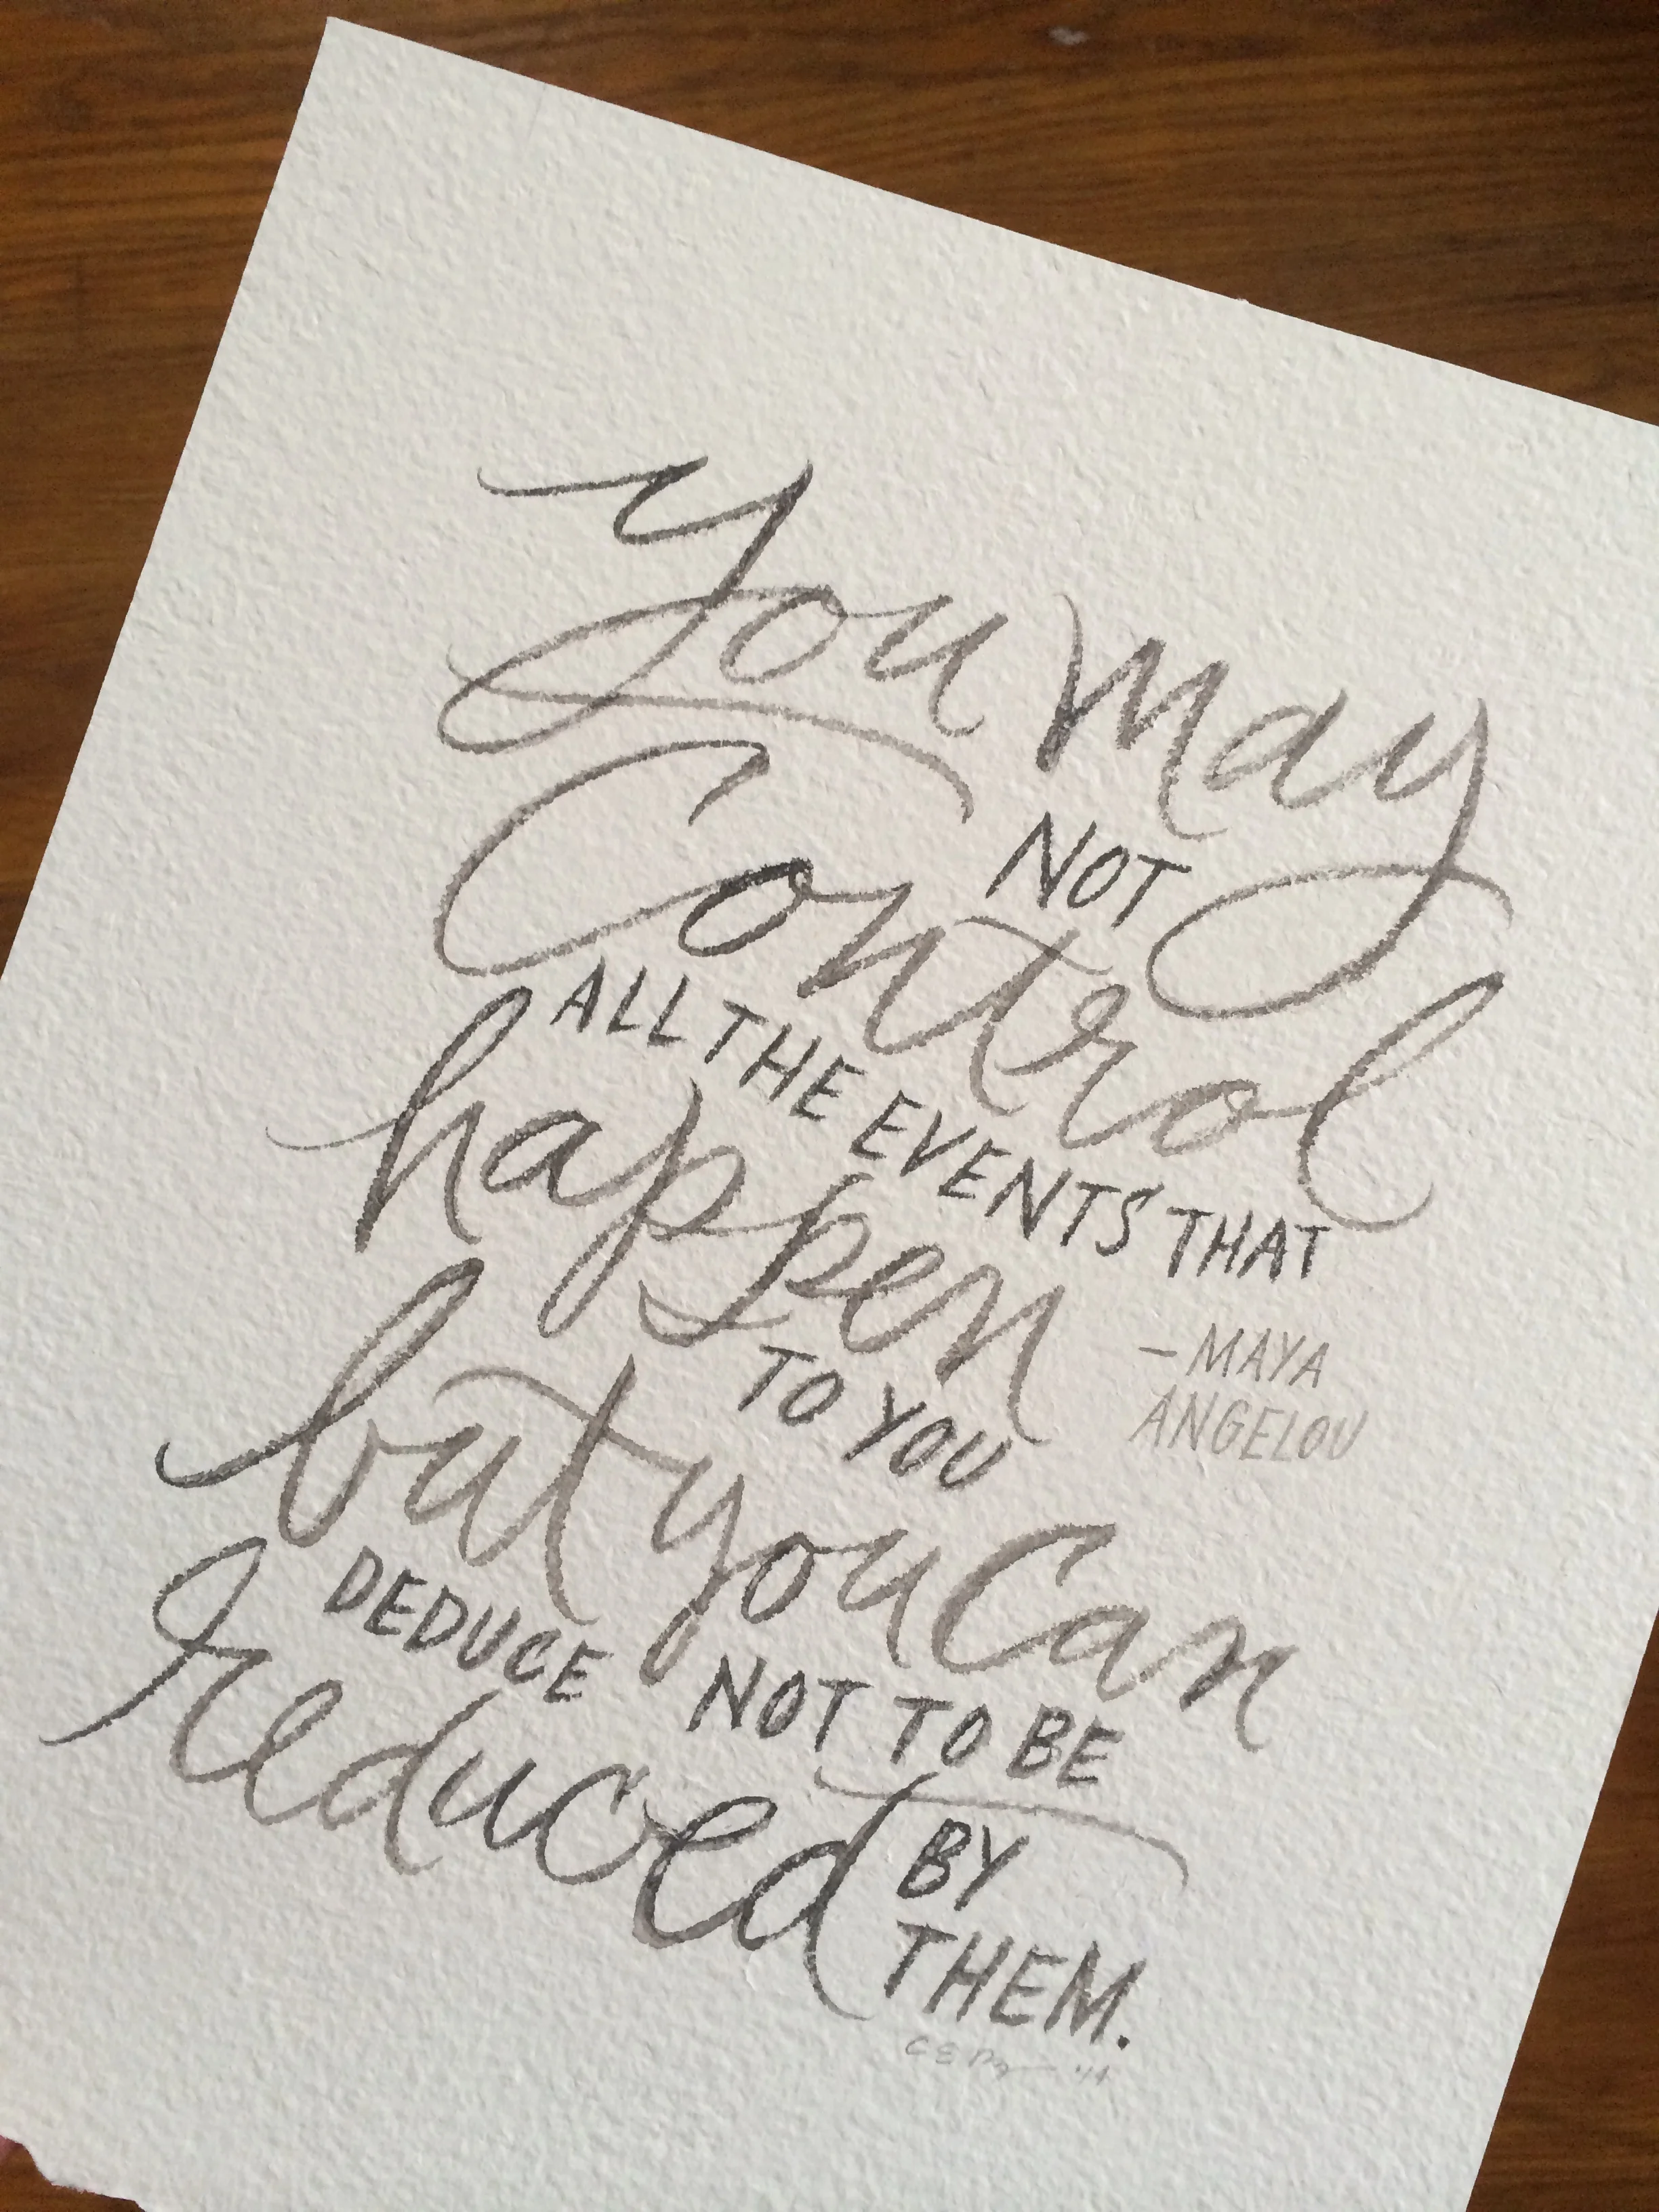 You may
NOT
Control
ALL THE EVENTS THAT
happen
TO YOU
– MAYA
ANGELOU
but you Can
DEDUCE NOT TO BE
reduced
BY
THEM.